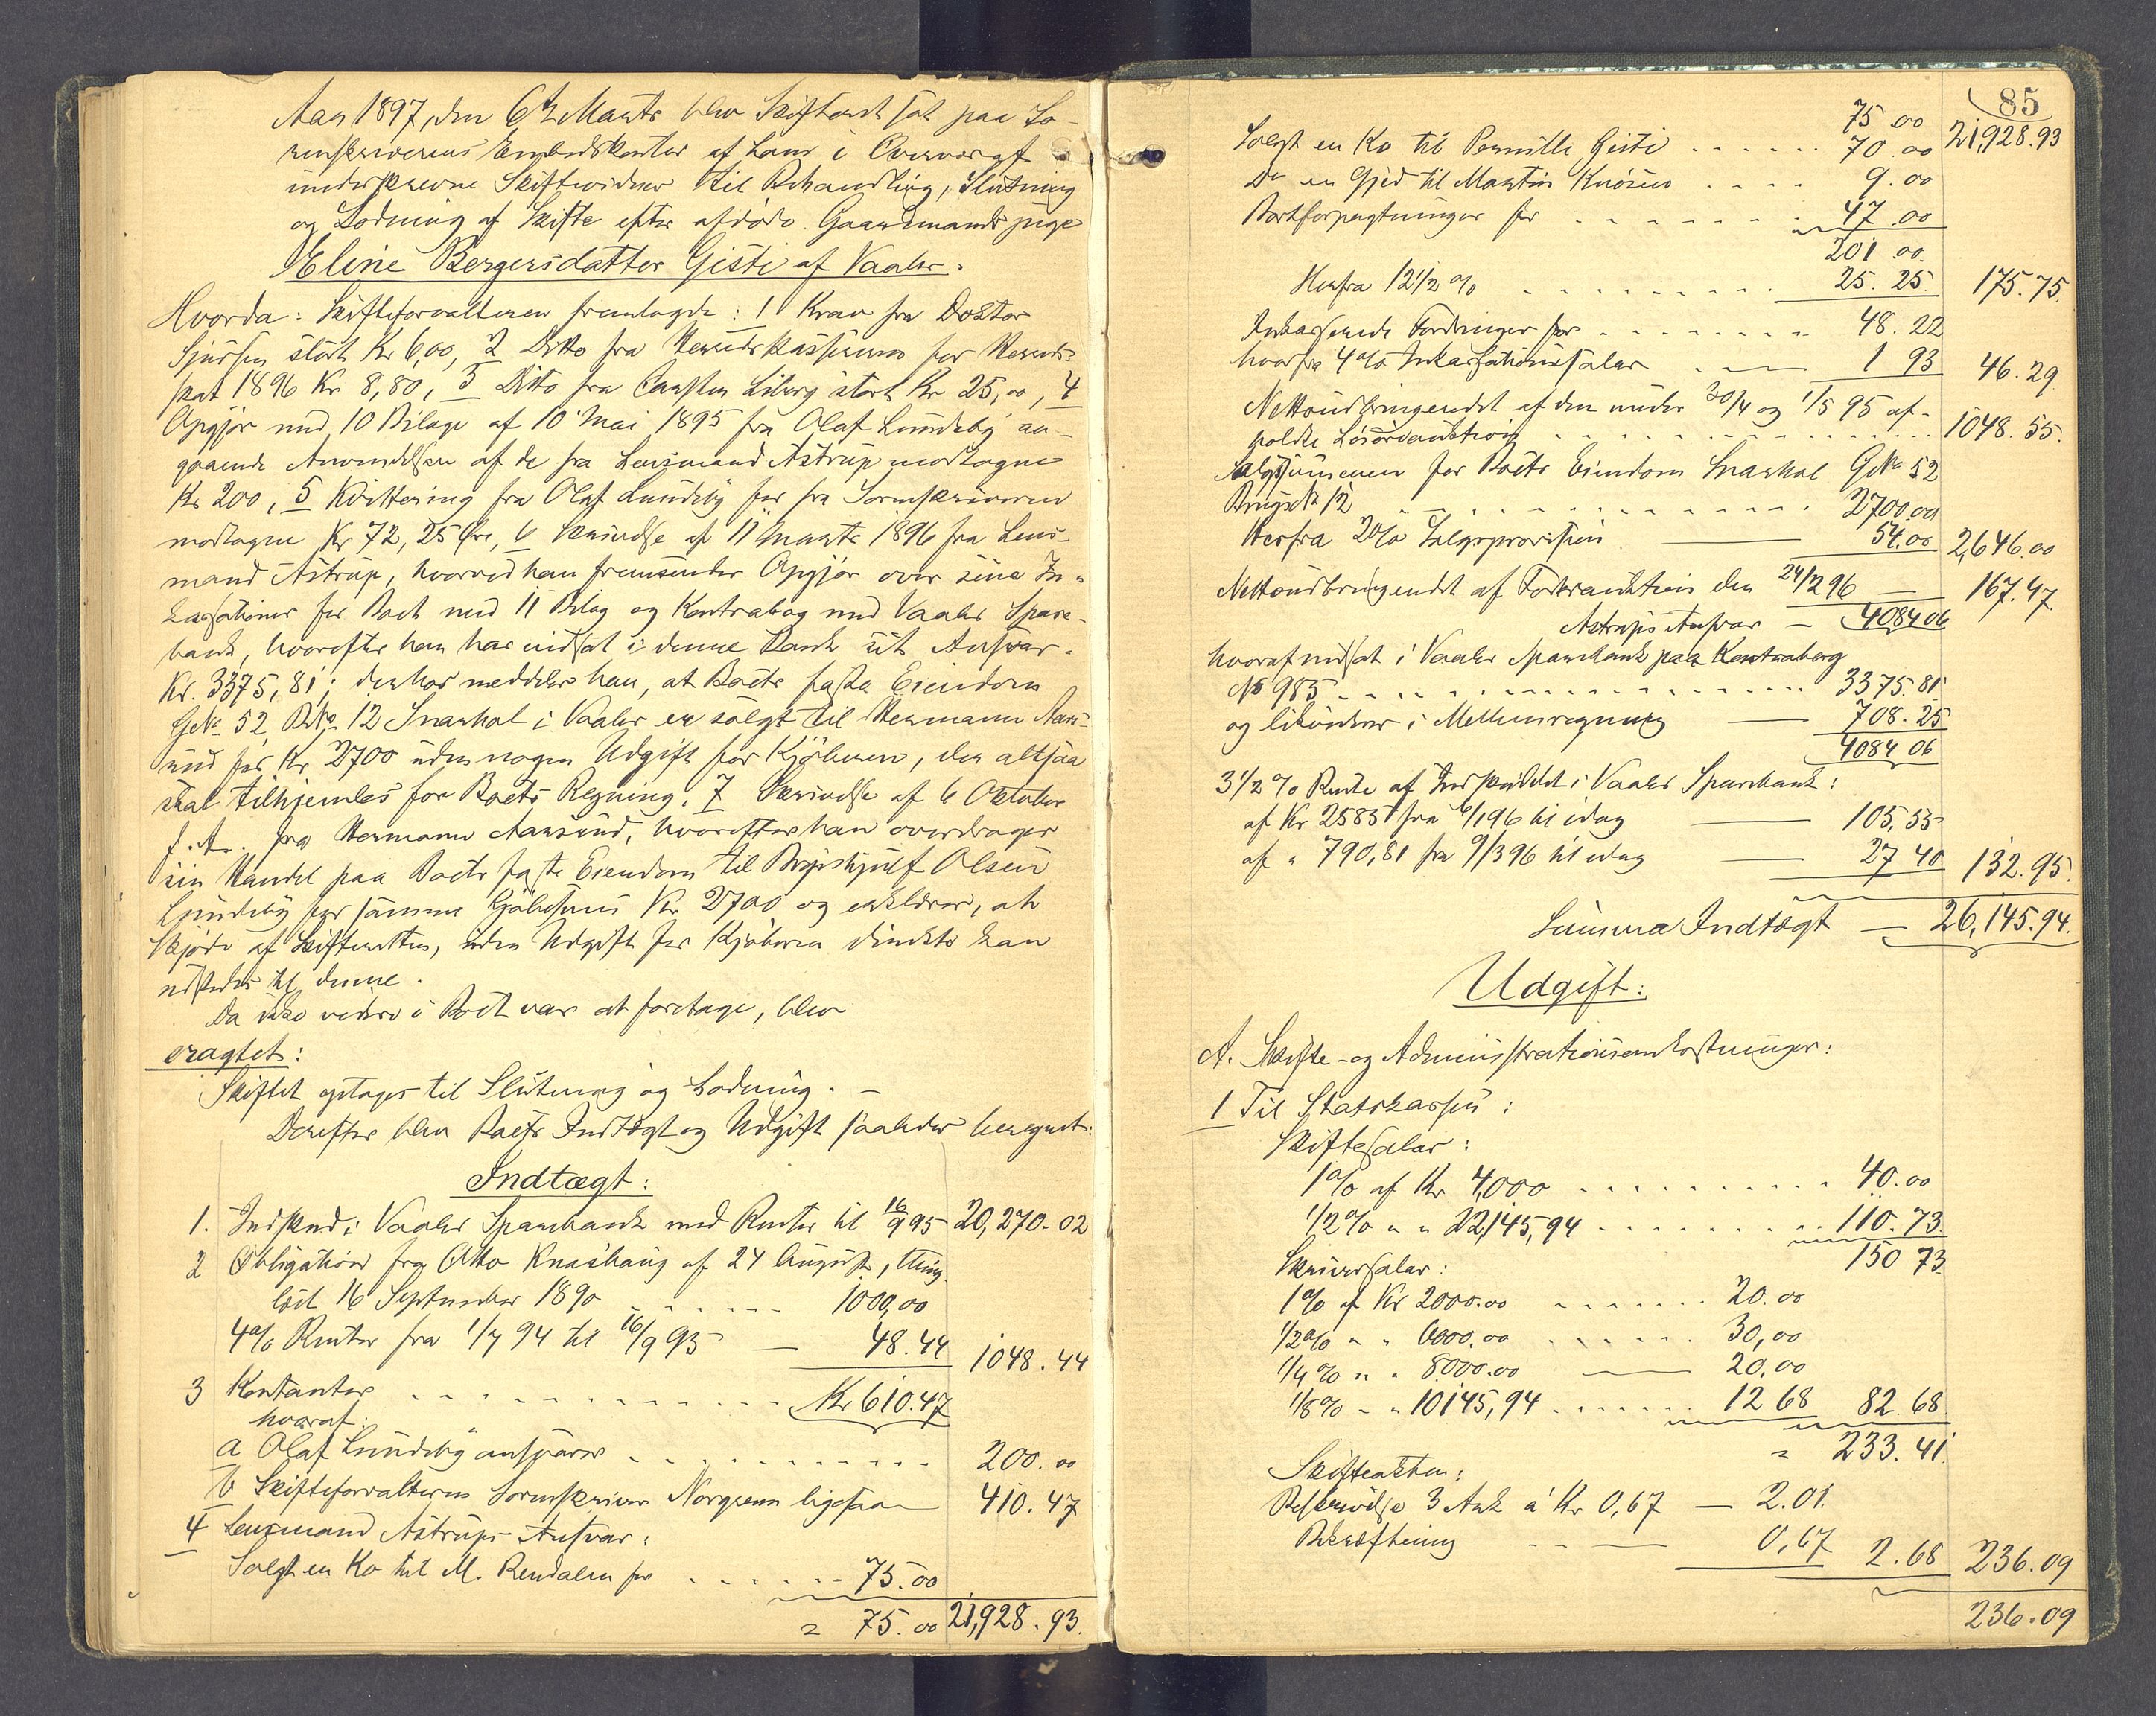 Aar 1897, den 6te Marts blev Skifteret sat paa So-
renskriverens Embedskontor af ham i Overvær af
underskrevne Skiftevidner til Behandling, Slutning
og Lodning af Skifte efter afdøde Gaardmandspige
Eline Bergersdatter Gisti af Vaaler.
Hvorda: Skifteforvalteren fremlagde: 1 Krav fra Doktor
Sjursen stort Kr 6,00, 2 Ditto fra Herredskassereren for Herreds-
skat 1896 Kr 8,80, 3 Ditto fra Carsten Liberg stort Kr 25,00, 4
Opgjør med 10 Bilage af 10 Mai 1895 fra Olaf Lundeby an-
gaaende Anvendelsen af de fra Lensmand Astrup modtagne
Kr 200, 5 Kvittering fra Olaf Lundeby for fra Sorenskriveren
modtagne Kr 72,25 Øre, 6 Skrivelse af 11 Marts 1896 fra Lens-
mand Astrup, hvorved han fremsender Opgjør over sine In-
kassationer for Boet med 11 Bilag og Kontrabog med Vaaler Spare-
bank, hvorefter han har indsat i denne Bank sit Ansvar.
Kr. 3375,81; derhos meddeler han, at Boets faste Eiendom
GNo 52, BNo 12 Snarhol i Vaaler er solgt til Hermann Aam-
und for Kr 2700 uden nogen Udgift for Kjøberen, der altsaa
skal tilhjemles for Boets Regning. 7 Skrivelse af 6 Oktober
f. A. fra Hermann Aamund, hvorefter han overdrager
sin Handel paa Boets faste Eiendom til Olsen
Lundeby for samme Kjøbesum Kr 2700 og erklærer, at
Skjøde af Skifteretten, uden Udgift for Kjøberen direkte kan
udstedes til denne.
Da ikke videre i Boet var at foretage, blev
eragtet:
Skiftet optages til Slutning og Lodning. —
Derefter blev Boets Indtægt og Udgift saaledes beregnet:
Indtægt:
1. Indskud i Vaaler Sparebank med Renter til 16/9 95 20,270.02
2 Obligation fra Otto Knashaug af 24 August, thing-
læst 16 September 1890 ...... 1000,00
4% Renter fra 1/7 94 til 16/9 95 — 48.44 1048.44
3 Kontanter ............ Kr 610.47
hvoraf:
a Olaf Lundeby ansvarer ........... 200.00
b Skifteforvalteren Sorenskriver Norgrenn ligesaa — 410.47
4 Lensmand Astrups Ansvar:
Solgt en Ko til M. Rendalen for ...... 75.00
= 75.00 21,928.93.
85
75 00 21,928.93
Solgt en Ko til Pernille Gisti ...... 70.00
Do en Gjed til Martin Knøsen .... 9.00
Bortforpagtninger for ....... 47.00
201 00.
Herfra 12 1/2 % ........ 25.25 175.75.
Inkasserede Fordringer for ........ 48.22
hvorfra 4% Inkassationssalær .. — 1 93 46.29
Nettoudbringendet af den under 30/4 og 1/5 95 af-
holdte Løsøreauktion ............. 1048.55.
Salgssummen for Boets Eiendom Snarhol GNo 52
Brugs No 12 ............ 2700.00
Herfra 2% Salgsprovision — 54.00 2,646.00
Nettoudbringendet af Forauktion den 24/2 96 — 167.47.
Astrups Ansvar — 4084 06
hvoraf indsat i Vaaler Sparebank paa Kontrabog
No 985 .............. 3375.81
og likviderer i Mellemregning — 708.25
4084 06
3 1/2 % Rente af Indskuddet i Vaaler Sparebank:
af Kr 2585 fra 6/1 96 til idag — 105,55
af " 790,81 fra 9/3 96 til idag — 27 40 132.95.
Summa Indtægt — 26,145.94.
Udgift:
A. Skifte- og Administrationsomkostninger:
1 Til Statskassen:
Skiftesalær:
1% af Kr 4,000 .......... 40.00
1/2% " " 22,145,94 ........ 110.73.
150 73
Skriversalær:
1% af Kr 2000.00 ....... 20.00
1/2% " " 6000.00 ...... 30,00
1/4% " " 8000.00 — 20,00
1/8% " " 10145,94 ...... 12 68 82.68.
= 233.41.
Skifteakten:
Beskrivelse 3 Ark á Kr 0,67 — 2.01.
Bekræftning — 0,67 2.68 236.09
236.09